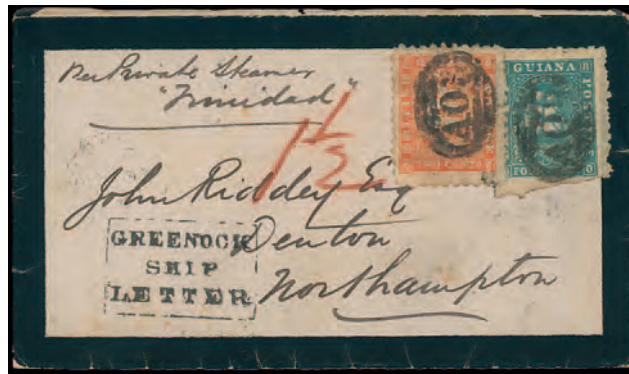 Per Private Steamer
"Trinidad"
1 1/2
GUIANA
A03
A03
John Riddey Esq
Denton
Northampton
GREENOCK
SHIP
LETTER